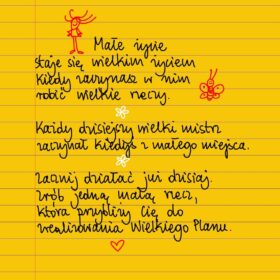 Małe życie
staje się wielkim życiem
kiedy zaczynasz w nim
robić wielkie rzeczy.
Każdy dzisiejszy wielki mistrz
zaczynał kiedyś z małego miejsca.
Zacznij działać już dzisiaj.
Zrób jedną małą rzecz,
która przybliży Cię do
zrealizowania Wielkiego Planu.